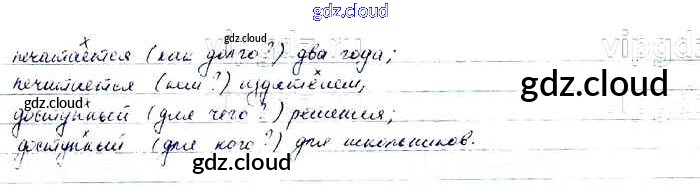 gdz.cloud
gdz.cloud
печатается (как долго?) два года;
печатается (кем?) издателем,
gdz.cloud
gdz.cloud
доступный (для чего?) решения;
доступный (для кого?) для школьников.
gdz.cloud
gdz.cloud